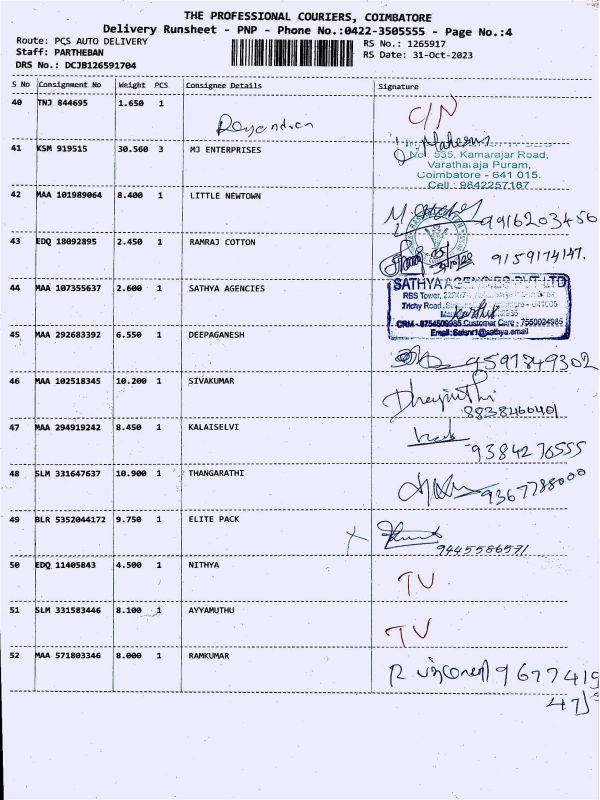 THE PROFESSIONAL COURIERS, COIMBATORE
Delivery Runsheet - PNP - Phone No.:0422-3505555 - Page No.:4
Route: PCS AUTO DELIVERY
RS No.: 1265917
Staff: PARTHEBAN
RS Date: 31-Oct-2023
DRS No.: DCJB126591704
S No Consignment No Weight PCS Consignee Details Signature
40 TNJ 844695 1.650 1 C/N
41 KSM 919515 30.560 3 MJ ENTERPRISES
No: 535, Kamarajar Road,
Varatharaja Puram,
Coimbatore - 641 015.
Cell : 9842257187
42 MAA 101989064 8.400 1 LITTLE NEWTOWN
9916203456
43 EDQ 18092895 2.450 1 RAMRAJ COTTON
9159174147.
44 MAA 107355637 2.600 1 SATHYA AGENCIES
SATHYA AGENCIES PVT LTD
RBS Tower,
Trichy Road,
CRM - 8754509985 Customer Care - 7550024985
45 MAA 292683392 6.550 1 DEEPAGANESH
9591849302
46 MAA 102518345 10.200 1 SIVAKUMAR
8838460401
47 MAA 294919242 8.450 1 KALAISELVI
9384276555
48 SLM 331647637 10.900 1 THANGARATHI
9367788000
49 BLR 5352044172 9.750 1 ELITE PACK
9445586571
50 EDQ 11405843 4.500 1 NITHYA TV
51 SLM 331583446 8.100 1 AYYAMUTHU TV
52 MAA 571803346 8.000 1 RAMKUMAR
9677419
47)5